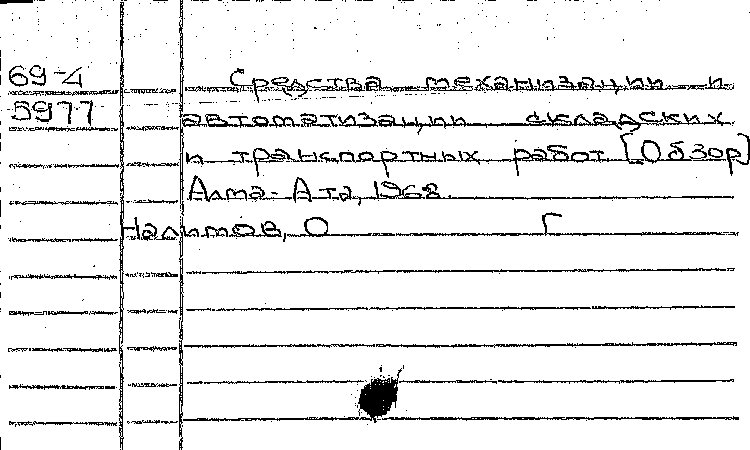 69-4 Средства механизации и
5977 автоматизации складских
и транспортных работ [Обзор]
Алма-Ата, 1968.
Налимов, О Г